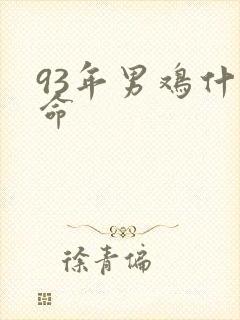 93年男鸡什
命
徐青偏